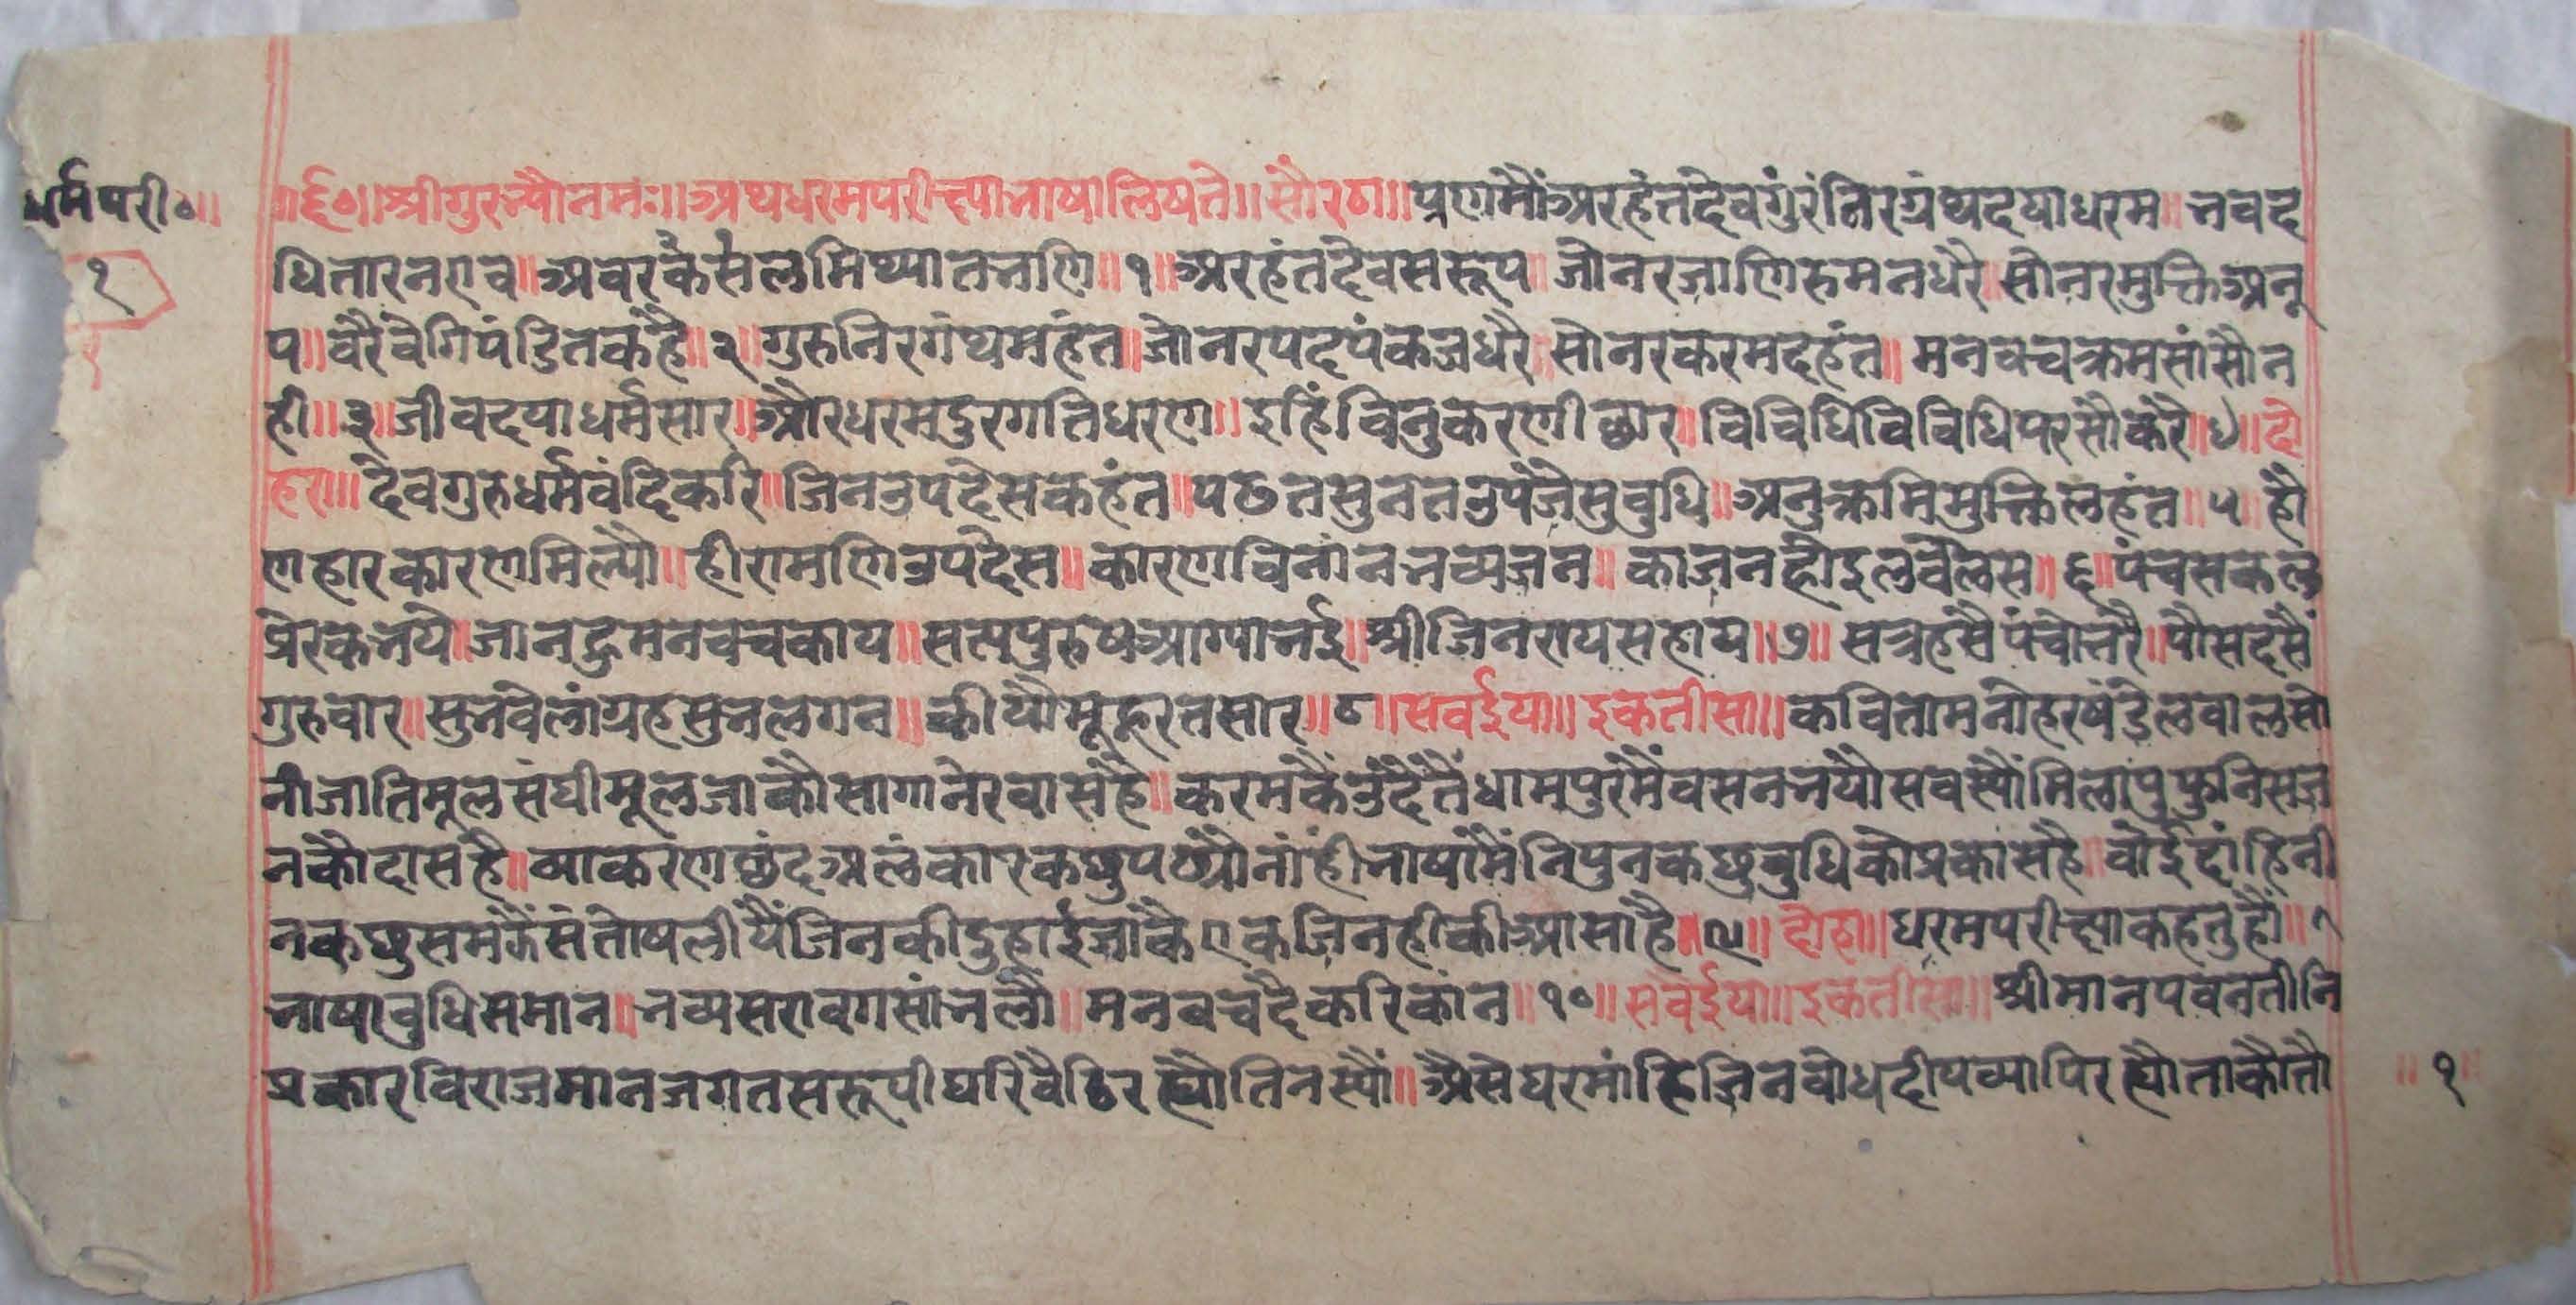 धर्मपरी०॥
१
॥ई०॥श्रीगुरुभ्यौनमः॥अथधरमपरीछ्याभाषालिष्यते॥सोरठा॥प्रणमौंअरहंतदेवगुरंनिरग्रंथदयाधरम॥भवद
धितारनएव॥अवरसकलमिथ्यातभणि॥१॥अरहंतदेवसरूप॥जोनरजाणिरुमनधरै॥सोनरमुक्तिअनू
प॥वरैवेगिपंडितकहै॥२॥गुरुनिरगंथमहंत॥जोनरपदपंकजधरै॥सोनरकरमदहंत॥मनवचक्रमसांसौन
ही॥३॥जीवदयाधर्मसार॥औरधरमदुरगतिधरण॥इहिंविनुकरणीछार॥विविधिविविधिपरसौकरै॥४॥दो
हरा॥देवगुरुधर्मवंदिकरि॥जिनउपदेसकहंत॥पठतसुनतउपजैसुबुधि॥अनुक्रमिमुक्तिलहंत॥५॥हौ
णहारकारणमिल्यौ॥हीरामणिउपदेस॥कारणविनांनभव्यजन॥काजनहीइलवैलेस॥६॥पंचसकल
प्रेरकभये॥जानहुमनवचकाय॥सतपुरुषआग्याभई॥श्रीजिनरायसहाय॥७॥सत्रहसैपंचोतरै॥पौसदसैं
गुरुवार॥सुभवेलांग्रहसुभलगन॥कीयौमूहूरतसार॥८॥सवईया॥इकतीसा॥कवितामनोहरषंडेलवालसो
नीजातिमूलसंघीमूलजाकौसागानेरवासहै॥करमकैउदैतैंधामपुरमैंवसनभयौसवस्यौंमिलापपुनिसज
नकौदासहै॥व्याकरणछंदअलंकारकछुपढ्यौनांहीभाषामैंनिपुनकछुबुधिकोप्रकासहै॥वांईदांहिनी
नकछुसमझैसंतोषलीयैंजिनकीदुहाईजाकैएकजिनहीकीआसाहै॥९॥दोहा॥धरमपरीछ्याकहतुहौं॥
भाषाबुधिसमान॥भव्यसरावगसांभलौ॥मनवचदैकरिकांन॥१०॥सवईया॥इकतीसा॥श्रीमानपवनतीनि
प्रकारविराजमानजगतसरूपीघरिवैढिरह्यौतिनस्यौं॥अैसेघरमांहिजिनबोधदीपव्यापिरह्यौताकौतौ
॥१॥